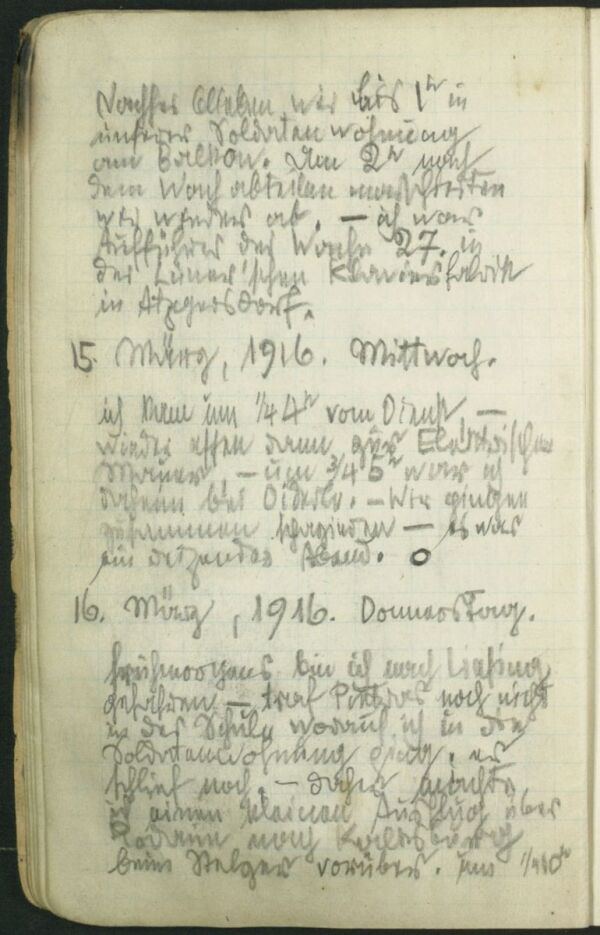 Nachher blieben wir bis 1h in
unserer Soldatenwohnung
am Balkon. Um 2h nach
dem Wach abteilen marschierten
wir wieder ab. — ich war
Aufführer der Wache 27. in
der Luner'schen Klavierfabrik
in Atzgersdorf.
15. März, 1916. Mittwoch.
ich kam um 1/4 4h vom Dienst, —
wieder essen dann zur Elektrischen
Mauer, — um 3/4 5h war ich
daheim bei — Wir gingen
zusammen spazieren — es war
ein reizender Abend. O
16. März, 1916. Donnerstag.
frühmorgens bin ich nach Liesing
gefahren — traf noch nicht
in der Schule worauf ich in die
Soldatenwohnung ging, er
schlief noch, — daher machte
ich einen kleinen Ausflug über
Rodaun nach Kalksburg
beim Stelzer vorüber. Um 1/410h